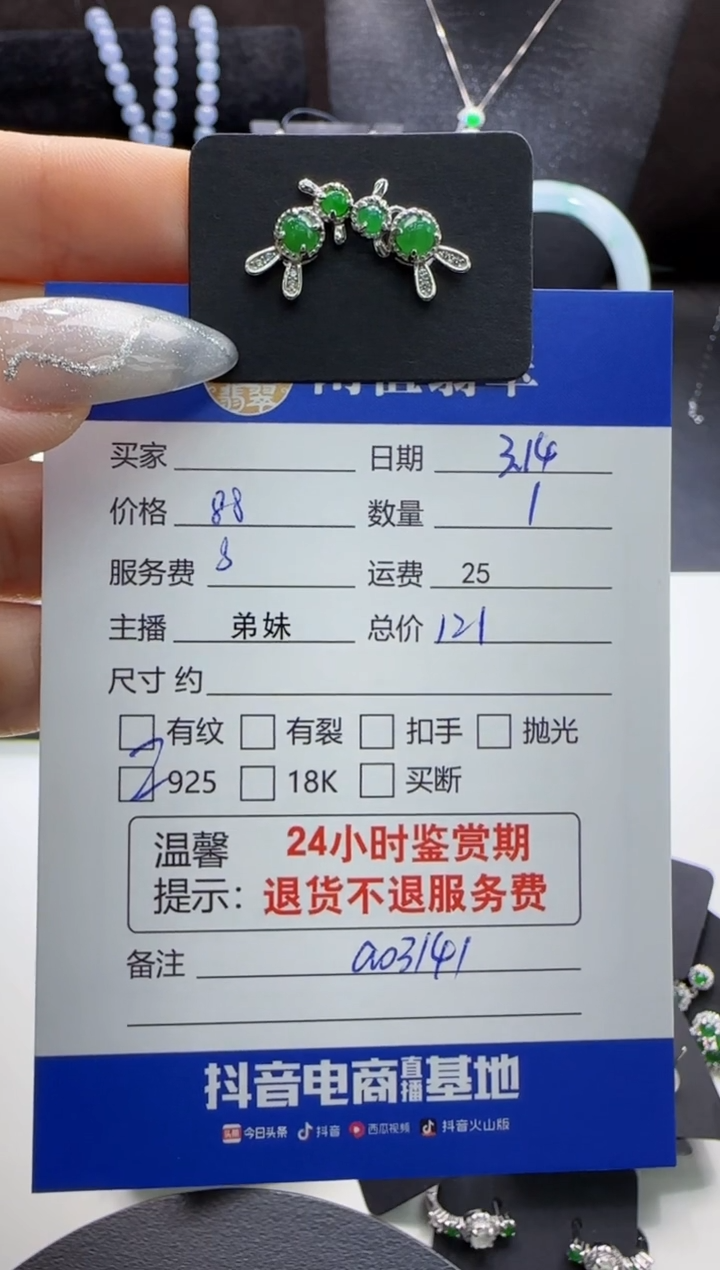 翡翠
买家 日期 3.14
价格 88 数量 1
服务费 8 运费 25
主播 弟妹 总价 121
尺寸 约
有纹 有裂 扣手 抛光
925 18K 买断
温馨 24小时鉴赏期
提示：退货不退服务费
备注 a03141
抖音电商直播基地
头条 今日头条 抖音 西瓜视频 抖音火山版